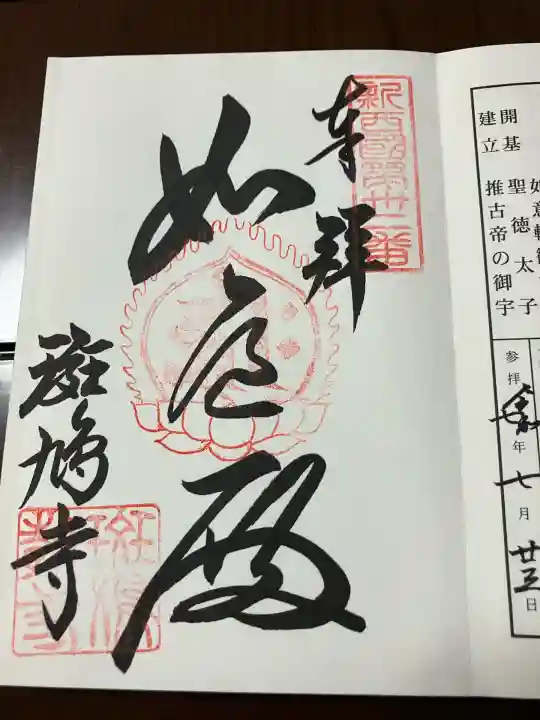 開基
聖徳太子
建立
推古帝の御宇
参拝
年
七
月
廿三
日
新西國第廿二番
奉拝
如意殿
斑鳩寺